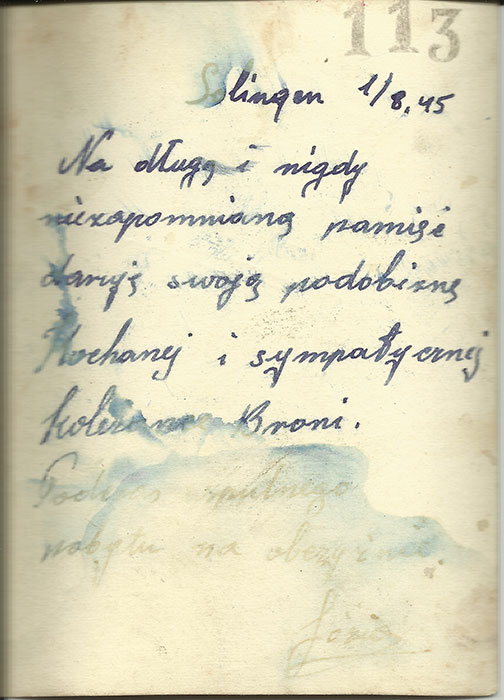 113
Solingen 1/8.45
Na długą i nigdy
niezapomnianą pamięć
daruję swoją podobiznę
Kochanej i sympatycznej
koleżance Broni.
Podczas wspólnego
pobytu na obczyźnie.